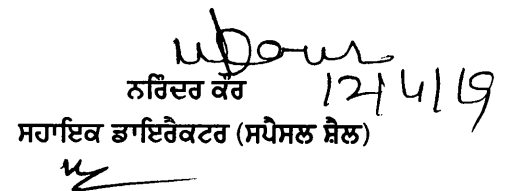 ਨਰਿੰਦਰ ਕੌਰ 12/4/19
ਸਹਾਇਕ ਡਾਇਰੈਕਟਰ (ਸਪੈਸਲ ਸ਼ੈਲ)